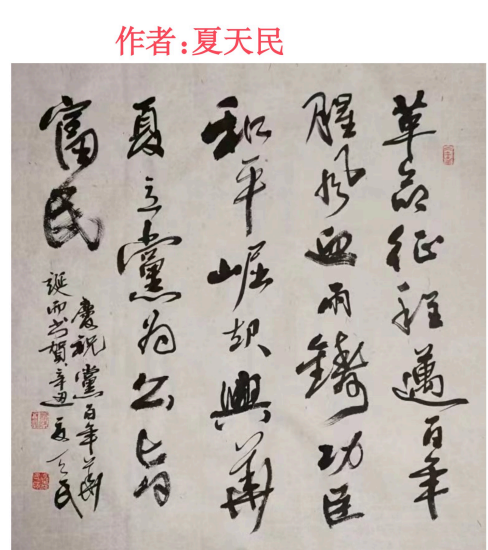 作者：夏天民
革命征程邁百年
腥风血雨鑄功臣
和平崛起興華
夏立黨为公
富民
慶祝黨百年華
誕而书贺辛丑夏天民